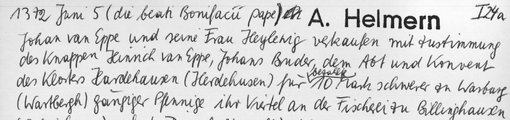 1372 Juni 5 (die beati Bonifacii pape) A. Helmern I 24a
Johan van Eppe und seine Frau Heylewig verkaufen mit Zustimmung
des Knappen Hinrich van Eppe, Johans Bruder, dem Abt und Konvent
des Klosters Hardehausen (Herdehusen) für bezahlte 10 Mark schwerer zu Warburg
(Wartbergh) gängiger Pfennige ihr Viertel an der Fischerei zu Billinghausen